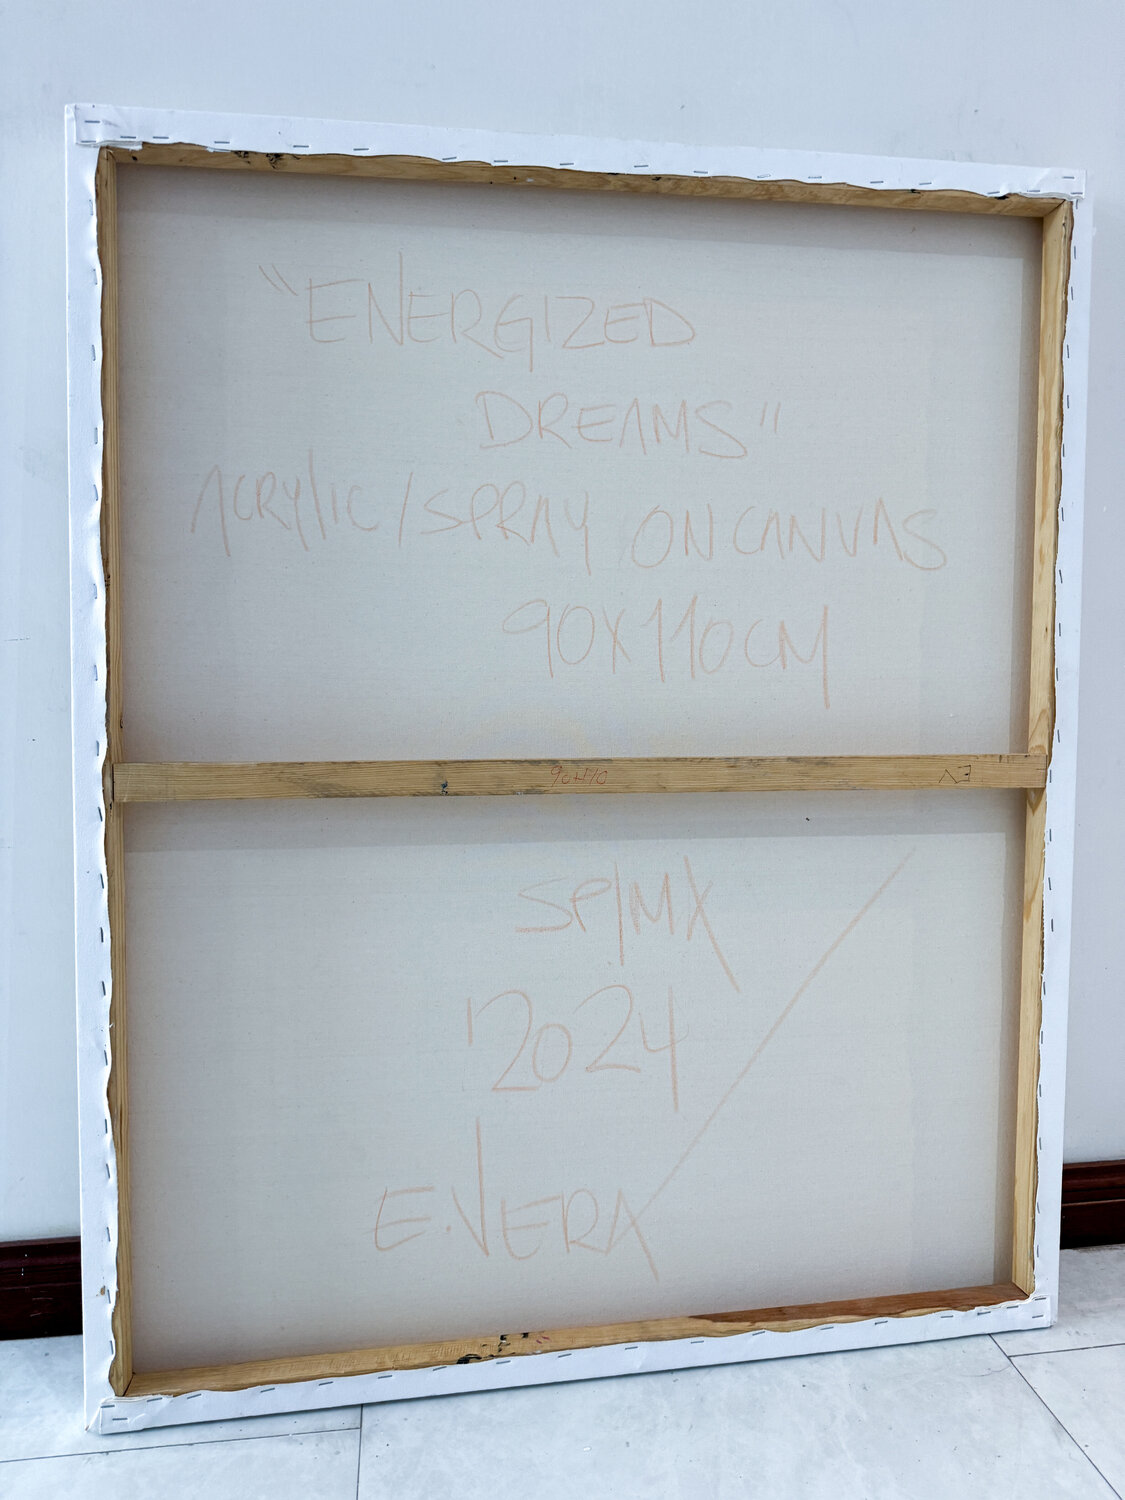 "ENERGIZED
DREAMS"
ACRYLIC/SPRAY ON CANVAS
90X110CM
EV
SP/MX
2024
E.VERA